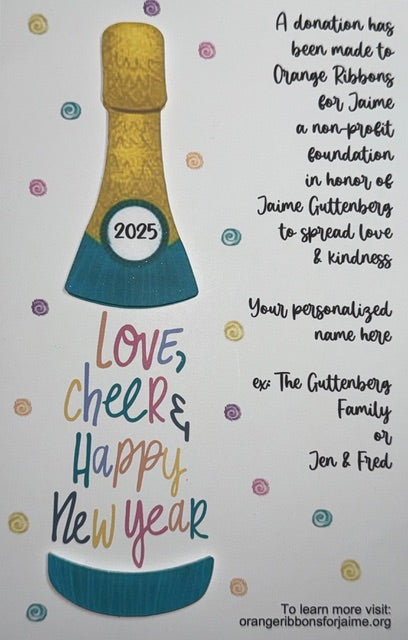 2025
LOVE,
cheeR &
Happy
New Year
A donation has
been made to
Orange Ribbons
for Jaime
a non-profit
foundation
in honor of
Jaime Guttenberg
to spread love
& kindness
Your personalized
name here
ex: The Guttenberg
Family
or
Jen & Fred
To learn more visit:
orangeribbonsforjaime.org